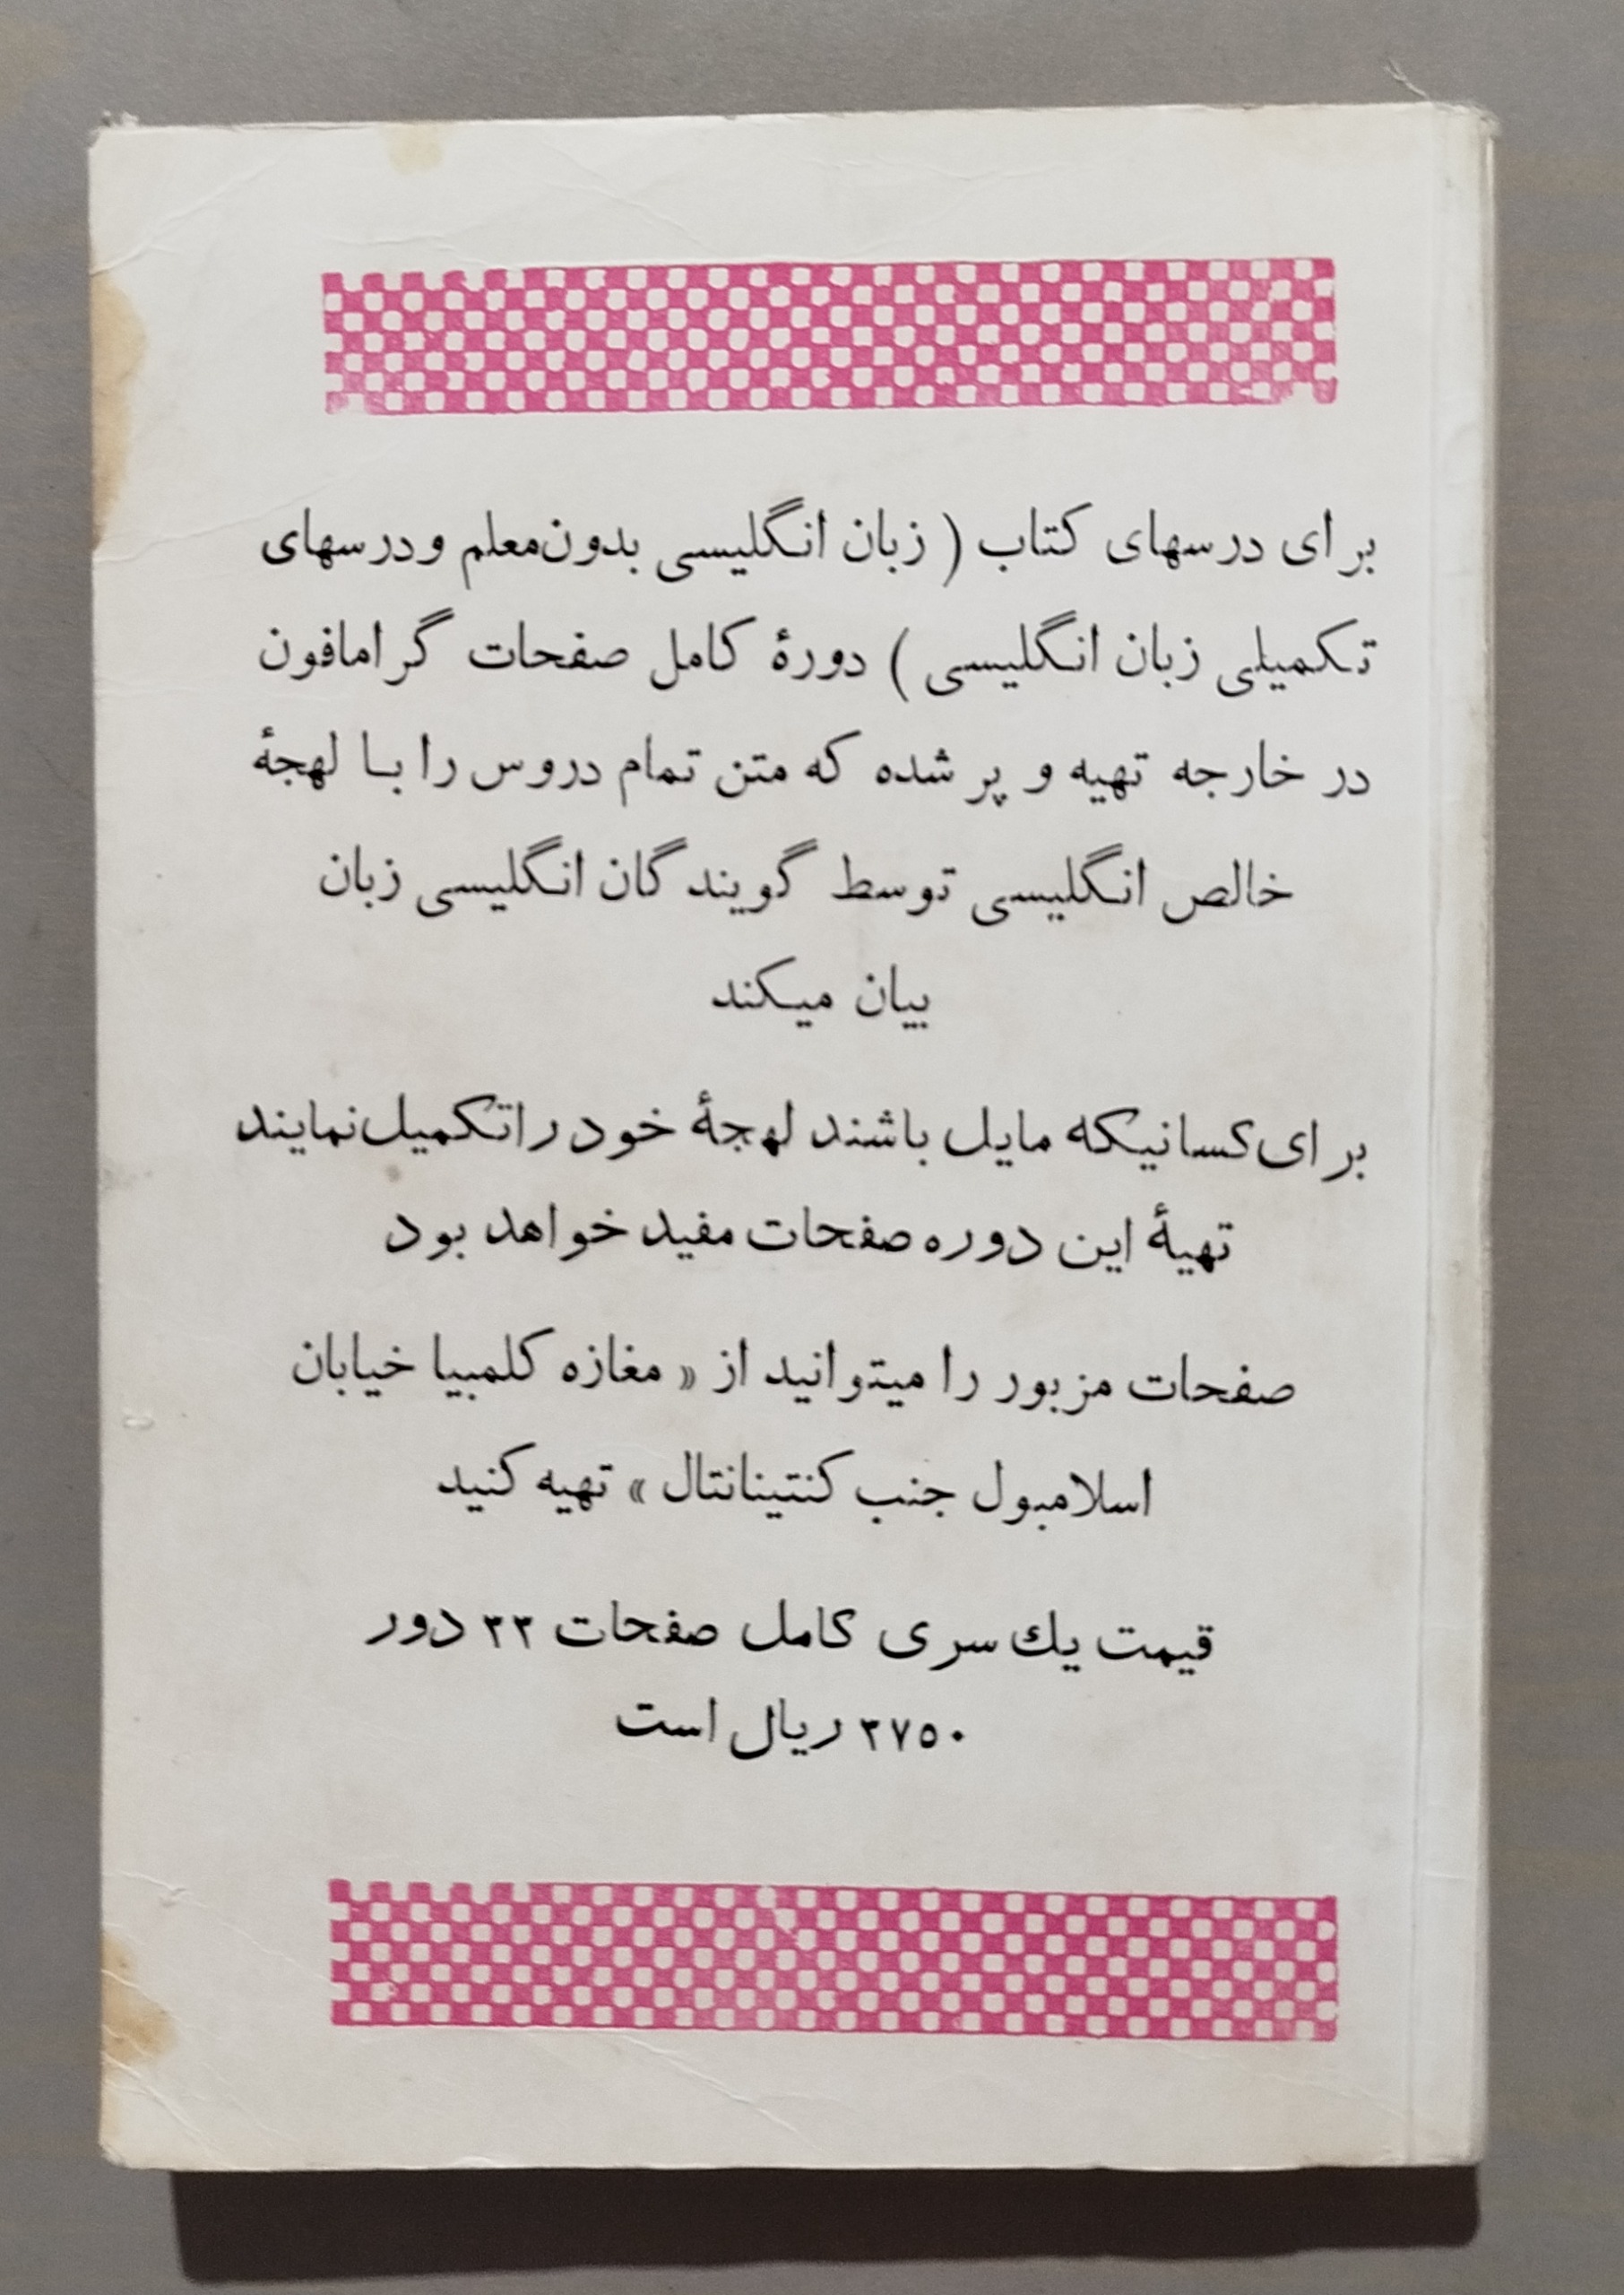 برای درسهای کتاب ( زبان انگلیسی بدون‌معلم و درسهای
تکمیلی زبان انگلیسی ) دورهٔ کامل صفحات گرامافون
در خارجه تهیه و پر شده که متن تمام دروس را با لهجهٔ
خالص انگلیسی توسط گویندگان انگلیسی زبان
بیان میکند
برای کسانیکه مایل باشند لهجهٔ خود را تکمیل نمایند
تهیهٔ این دوره صفحات مفید خواهد بود
صفحات مزبور را میتوانید از « مغازه کلمبیا خیابان
اسلامبول جنب کنتینانتال » تهیه کنید
قیمت یك سری کامل صفحات ۳۳ دور
۲۷۵۰ ریال است